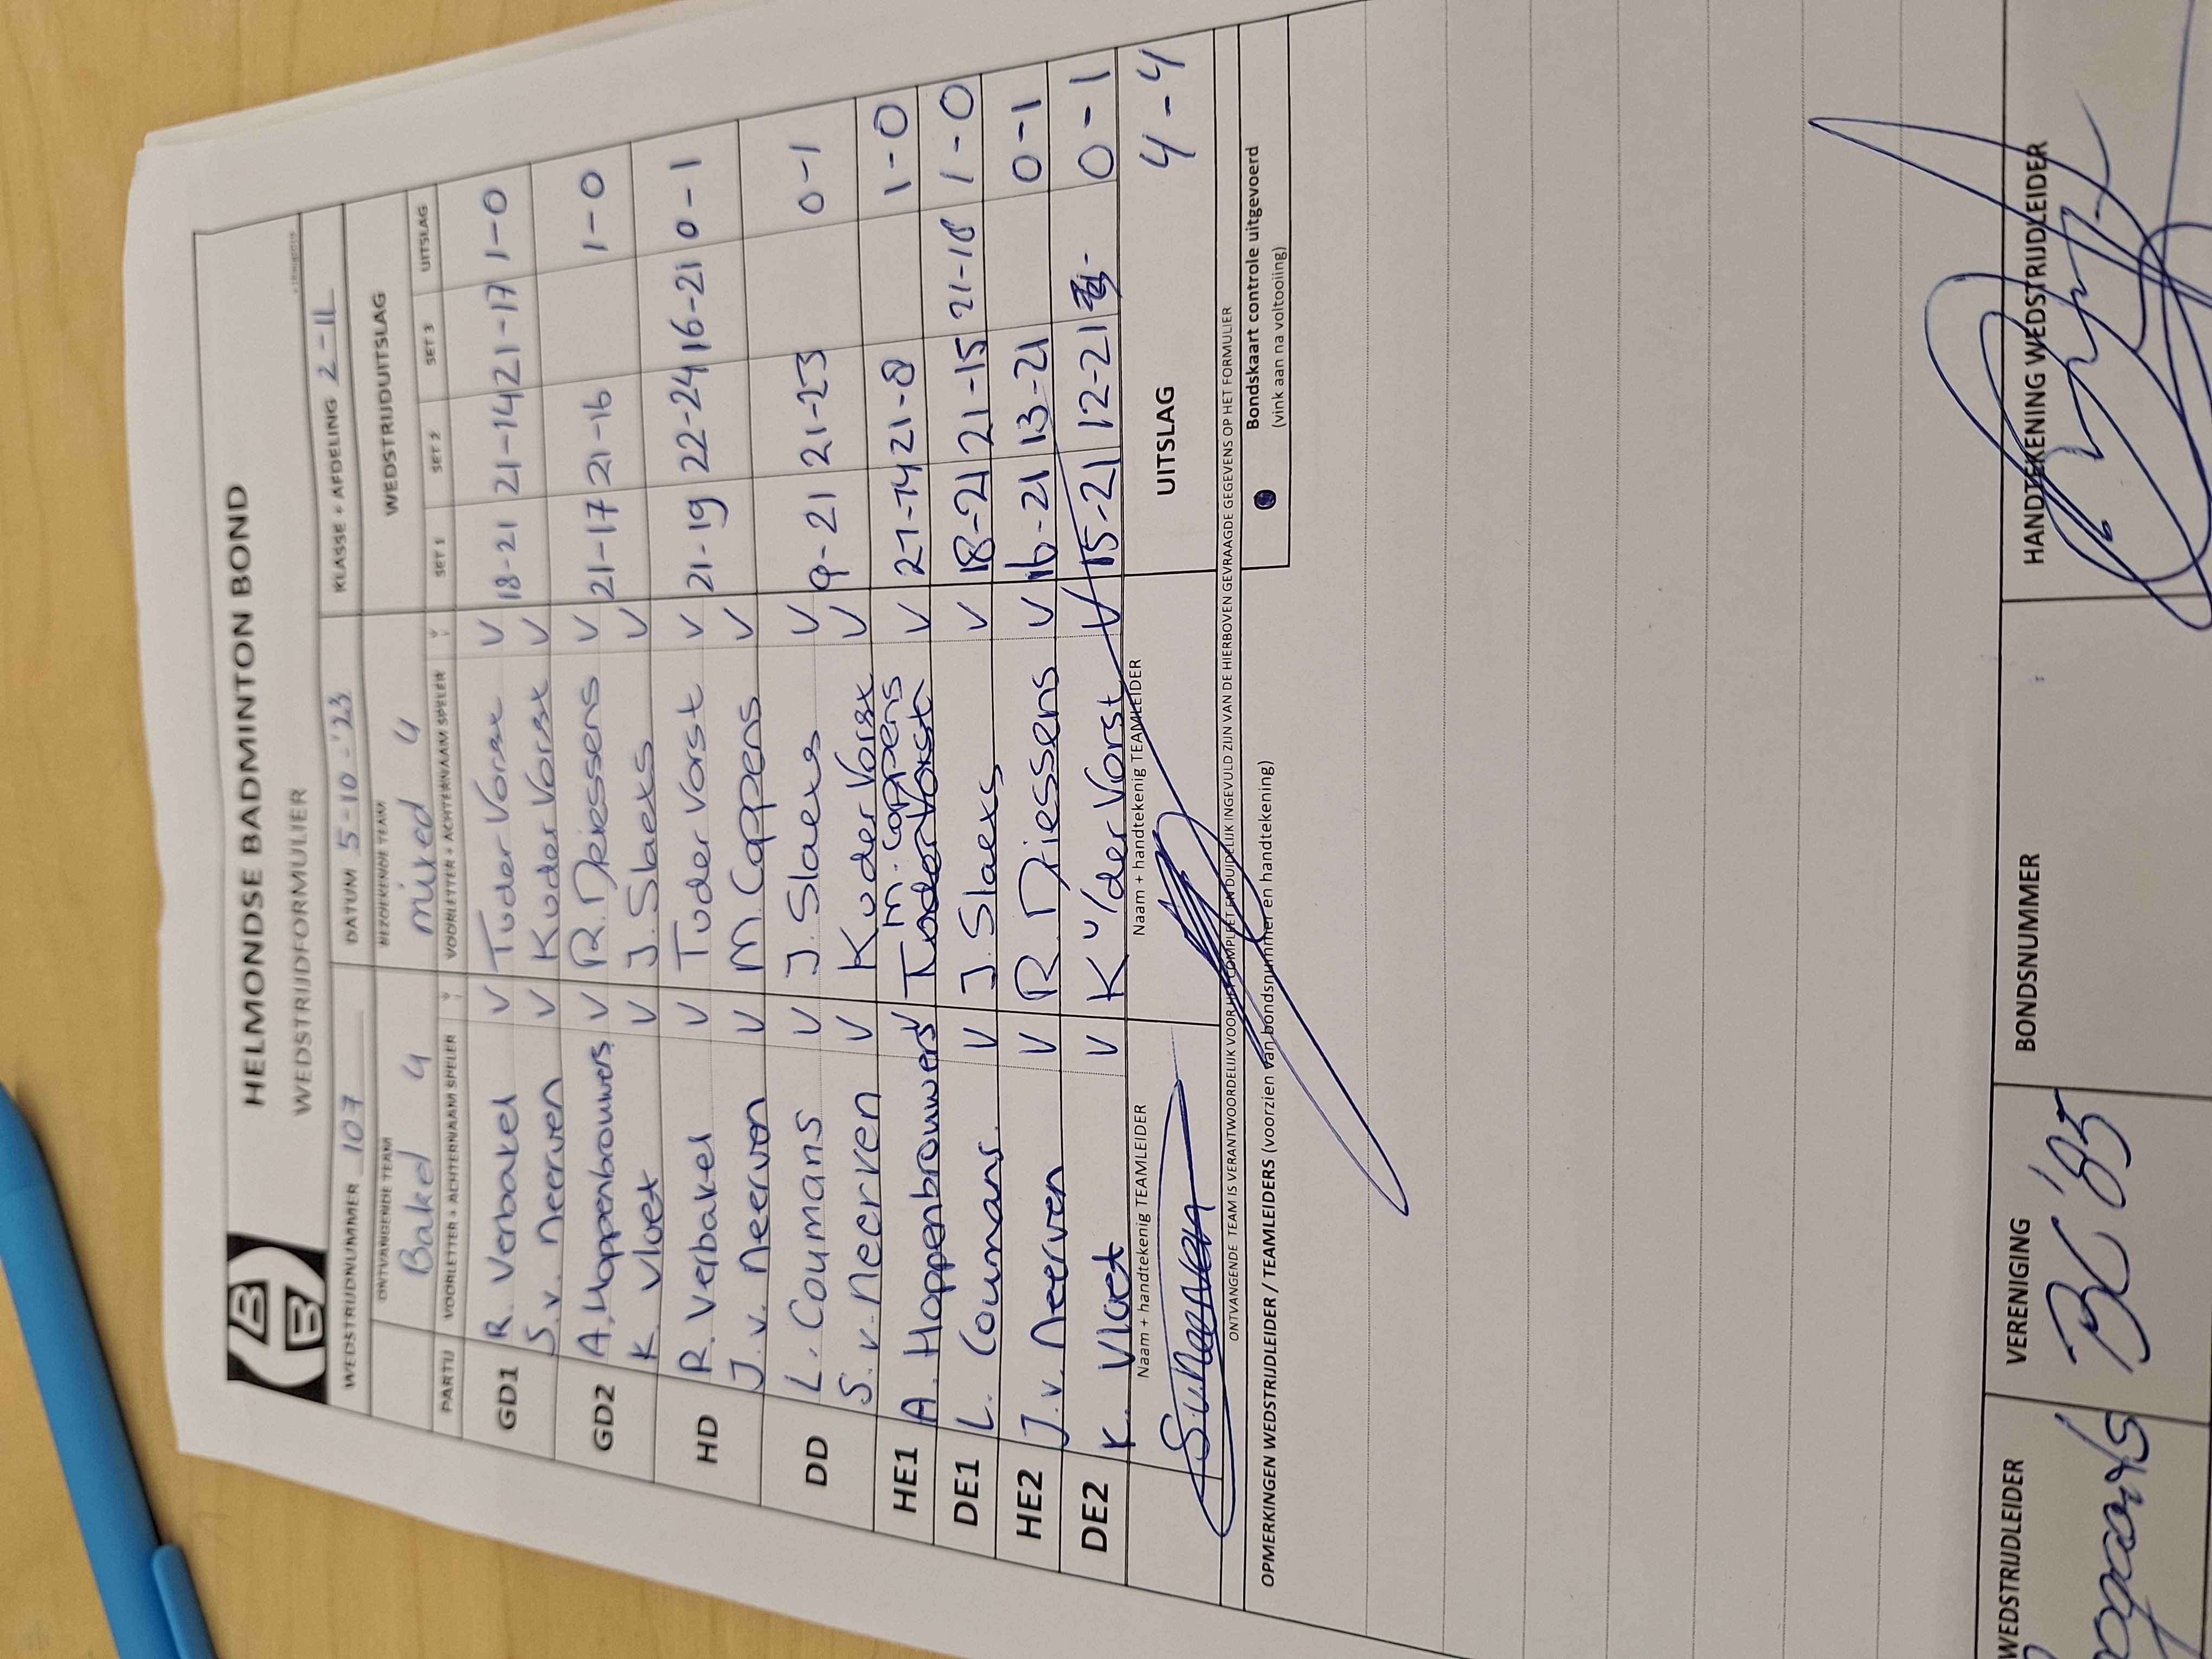 HB
B
HELMONDSE BADMINTON BOND
WEDSTRIJDFORMULIER
WEDSTRIJDNUMMER 107 DATUM 5-10-'23 KLASSE + AFDELING 2-11
ONTVANGENDE TEAM BEZOEKENDE TEAM WEDSTRIJDUITSLAG
Bakel 4 mixed 4
PARTIJ VOORLETTER + ACHTERNAAM SPELER V VOORLETTER + ACHTERNAAM SPELER V SET 1 SET 2 SET 3 UITSLAG
GD1 R. Verbakel V T v der Vorst V 18-21 21-14 21-17 1-0
S. v. Neerven V K v der Vorst V
GD2 A. Hoppenbrouwers V R. Driessens V 21-17 21-16 1-0
K. Vloet V J. Slaets V
HD R. Verbakel V T v der Vorst V 21-19 22-24 16-21 0-1
J. v. Neerven V M. Coppens V
DD L. Coumans V J. Slaets V 9-21 21-23 0-1
S. v. Neerven V K v der Vorst V
M. Coppens
HE1 A. Hoppenbrouwers V T v der Vorst V 21-14 21-8 1-0
DE1 L. Coumans V J. Slaets V 18-21 21-15 21-18 1-0
HE2 J. v. Neerven V R. Driessens V 16-21 13-21 0-1
DE2 K. Vloet V K v/der Vorst V 15-21 12-21 0-1
Naam + handtekenig TEAMLEIDER Naam + handtekenig TEAMLEIDER UITSLAG 4-4
S.v.Neerven
ONTVANGENDE TEAM IS VERANTWOORDELIJK VOOR HET COMPLEET EN DUIDELIJK INGEVULD ZIJN VAN DE HIERBOVEN GEVRAAGDE GEGEVENS OP HET FORMULIER
OPMERKINGEN WEDSTRIJDLEIDER / TEAMLEIDERS (voorzien van bondsnummer en handtekening)
Bondskaart controle uitgevoerd
(vink aan na voltooiing)
WEDSTRIJDLEIDER VERENIGING BONDSNUMMER HANDTEKENING WEDSTRIJDLEIDER
BC '85